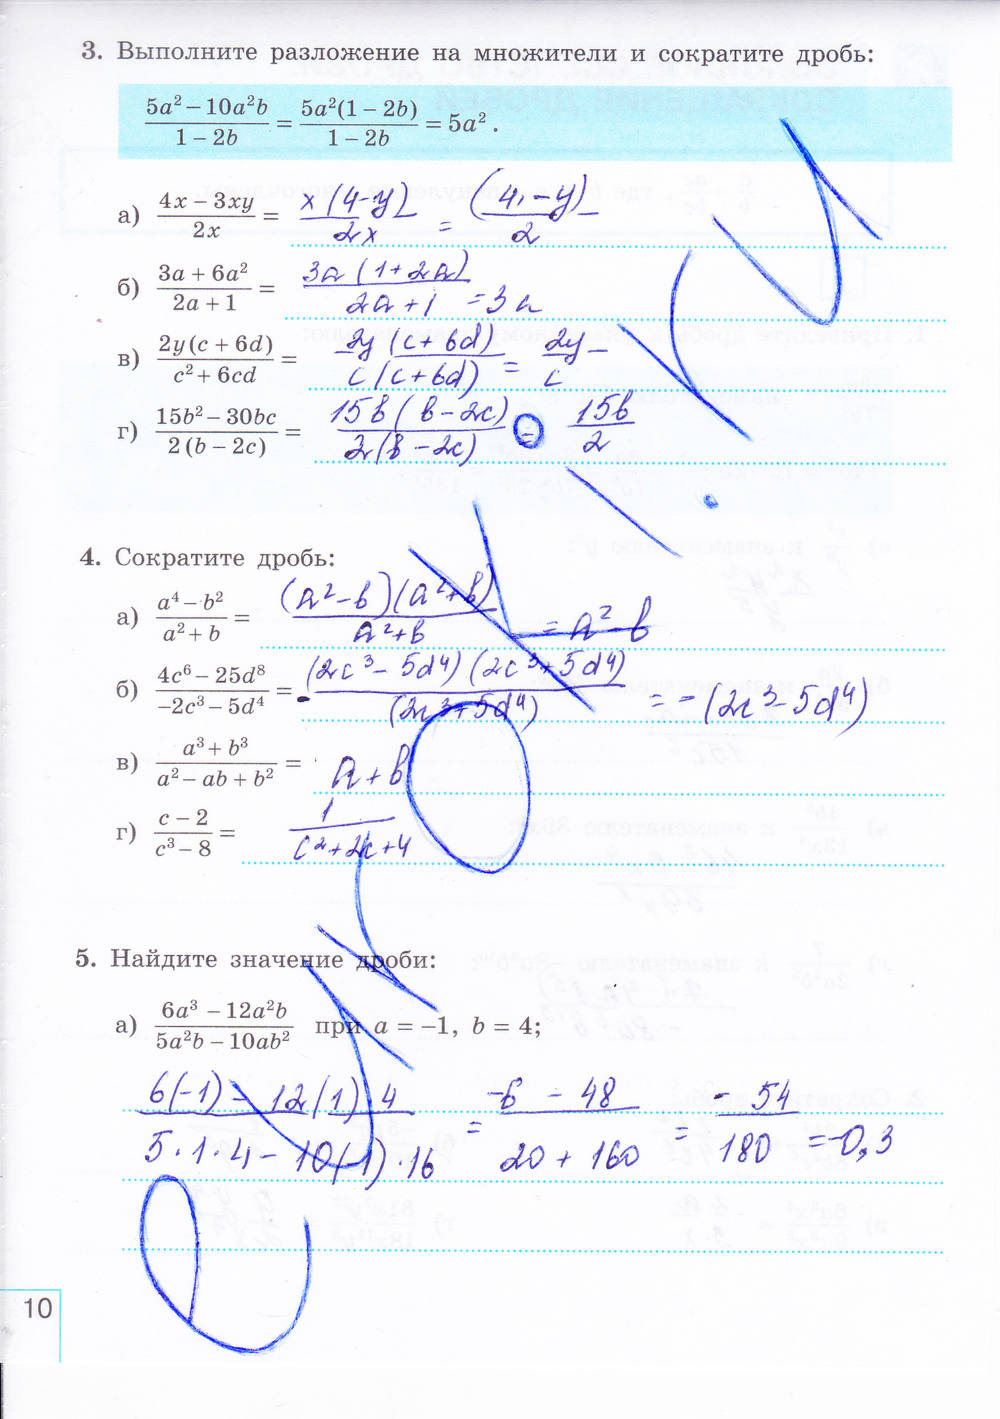 3. Выполните разложение на множители и сократите дробь:
(5a² − 10a²b)/(1 − 2b) = 5a²(1 − 2b)/(1 − 2b) = 5a².
а) (4x − 3xy)/(2x) = x(4-y)/2x = (4,-y)/2
б) (3a + 6a²)/(2a + 1) = 3a(1+2a)/(2a+1) = 3a
в) 2y(c + 6d)/(c² + 6cd) = 2y(c+6d)/c(c+6d) = 2y/c
г) (15b² − 30bc)/(2(b − 2c)) = 15b(b-2c)/2(b-2c) = 15b/2
4. Сократите дробь:
а) (a⁴ − b²)/(a² + b) = (a²-b)(a²+b)/(a²+b) = a²-b
б) (4c⁶ − 25d⁸)/(−2c³ − 5d⁴) = (2c³-5d⁴)(2c³+5d⁴)/-(2c³+5d⁴) = -(2c³-5d⁴)
в) (a³ + b³)/(a² − ab + b²) = a+b
г) (c − 2)/(c³ − 8) = 1/(c²+2c+4)
5. Найдите значение дроби:
а) (6a³ − 12a²b)/(5a²b − 10ab²) при a = −1, b = 4;
(6(-1) - 12(1)·4)/(5·1·4 - 10(-1)·16) = (-6 - 48)/(20+160) = -54/180 = -0,3
10